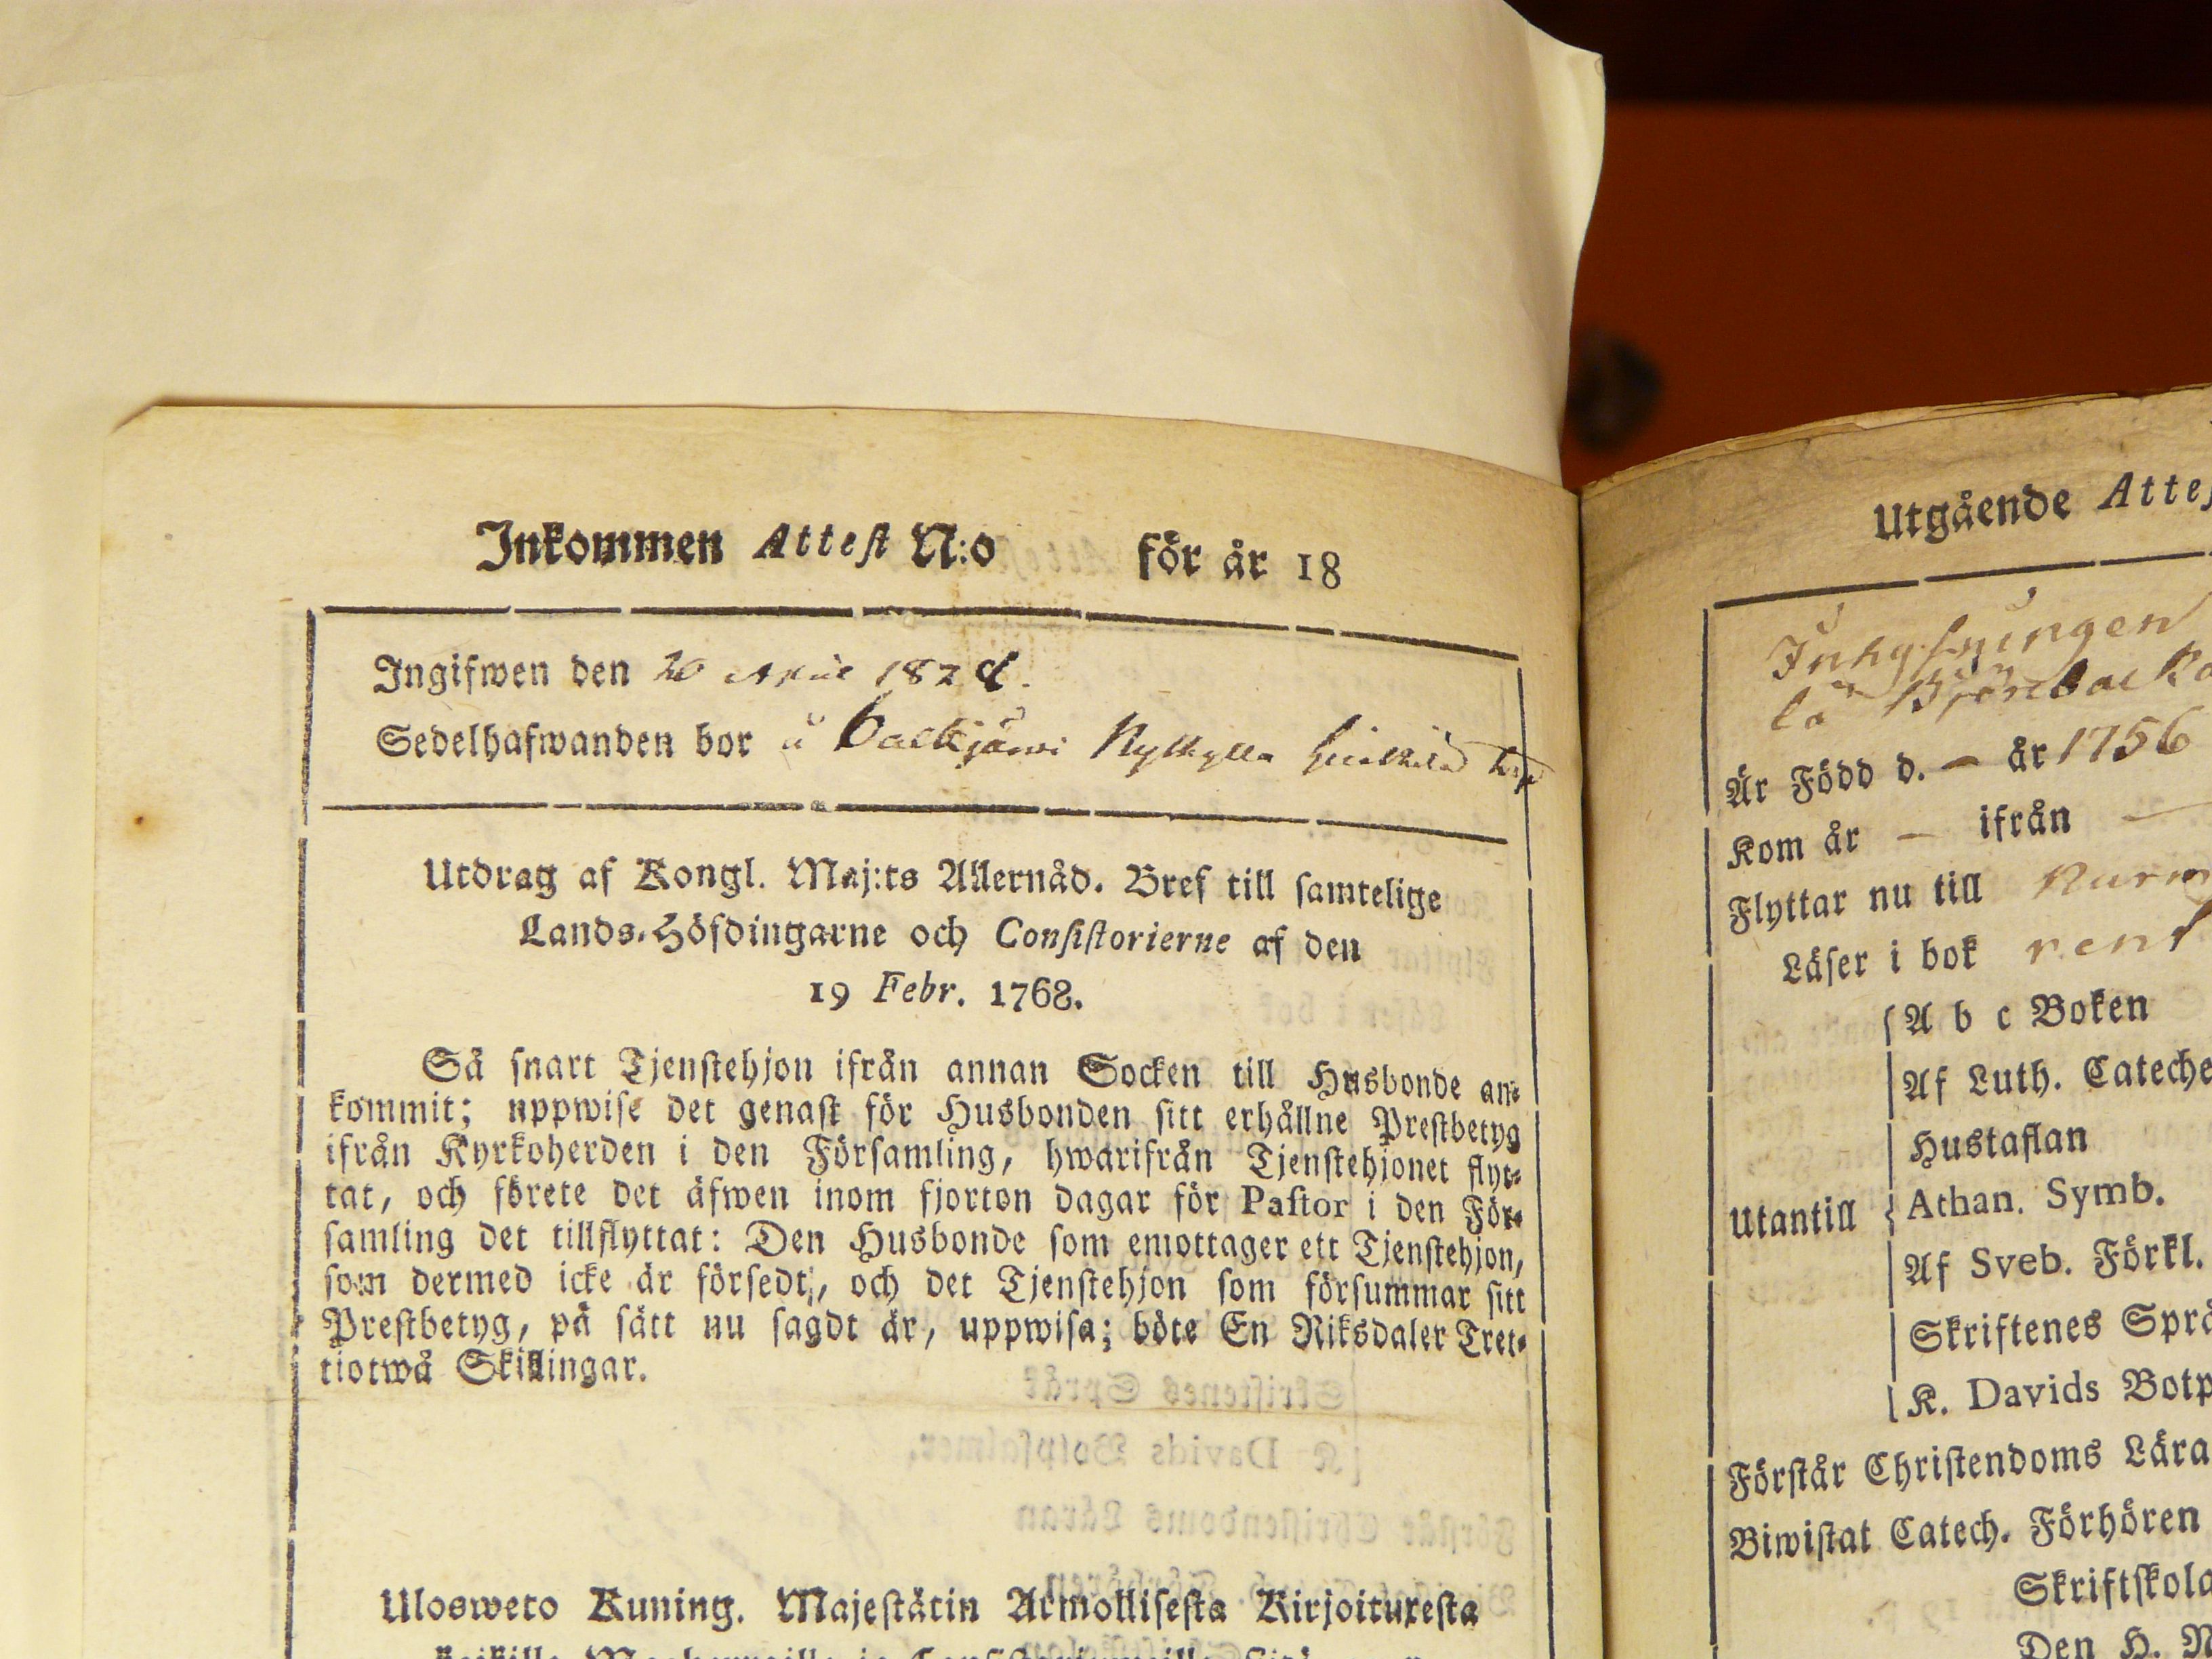 Inkommen Attest N:o för år 18
Ingifwen den 20 April 1824.
Sedelhafwanden bor å Nylkylla
Utdrag af Kongl. Maj:ts Allernåd. Bref till samtelige
Lands-Höfdingarne och Consistorierne af den
19 Febr. 1768.
Så snart Tjenstehjon ifrån annan Socken till Husbonde an-
kommit; uppwise det genast för Husbonden sitt erhållne Prestbetyg
ifrån Kyrkoherden i den Församling, hwarifrån Tjenstehjonet flyt-
tat, och förete det äfwen inom fjorton dagar för Pastor i den För-
samling det tillflyttat: Den Husbonde som emottager ett Tjenstehjon,
som dermed icke är försedt, och det Tjenstehjon som försummar sitt
Prestbetyg, på sätt nu sagdt är, uppwisa; böte En Riksdaler Tret-
tiotwå Skillingar.
Ulosweto Kuning. Majestätin Armollisesta Kirjoituresta
Utgående Attes
Inhysningen
Är Född d. – år 1756
Kom år – ifrån –
Flyttar nu till Nurm
Läser i bok rent
Utantill
A b c Boken
Af Luth. Cateche
Hustaflan
Athan. Symb.
Af Sveb. Förkl.
Skriftenes Språ
K. Davids Botp
Förstår Christendoms Lära
Biwistat Catech. Förhören
Skriftskola
Den H. N